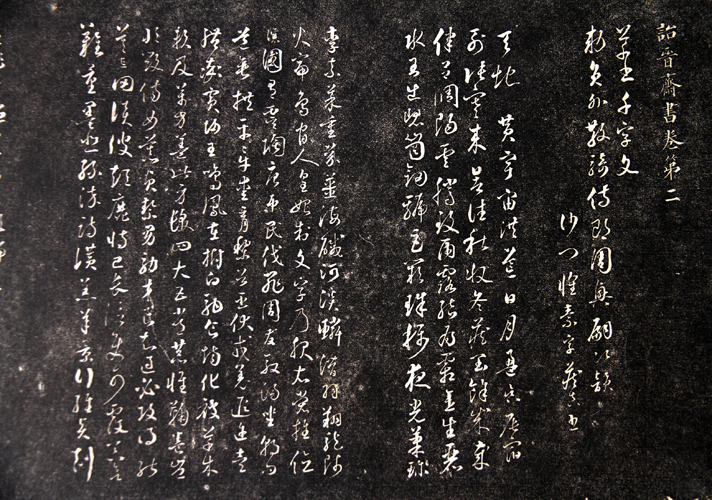 詒晉齋書卷第二
草書千字文
勅員外散騎侍郎周興嗣次韻
沙門懷素字藏真書
天地黃宇宙洪荒日月盈昃辰宿
列張寒來暑往秋收冬藏閏餘成歲
律呂調陽雲騰致雨露結為霜金生麗
水玉出崐崗劍號巨闕珠稱夜光菓珍
李柰菜重芥薑海鹹河淡鱗潛羽翔龍師
火帝鳥官人皇始制文字乃服衣裳推位
讓國有虞陶唐弔民伐罪周發殷湯坐朝問
道垂拱平章愛育黎首臣伏戎羌遐邇壹
體率賓歸王鳴鳳在樹白駒食場化被草木
賴及萬方蓋此身髮四大五常恭惟鞠養豈
敢毀傷女慕貞絜男效才良知過必改得能
莫忘罔談彼短靡恃己長信使可覆器欲
難量墨悲絲染詩讚羔羊景行維賢剋